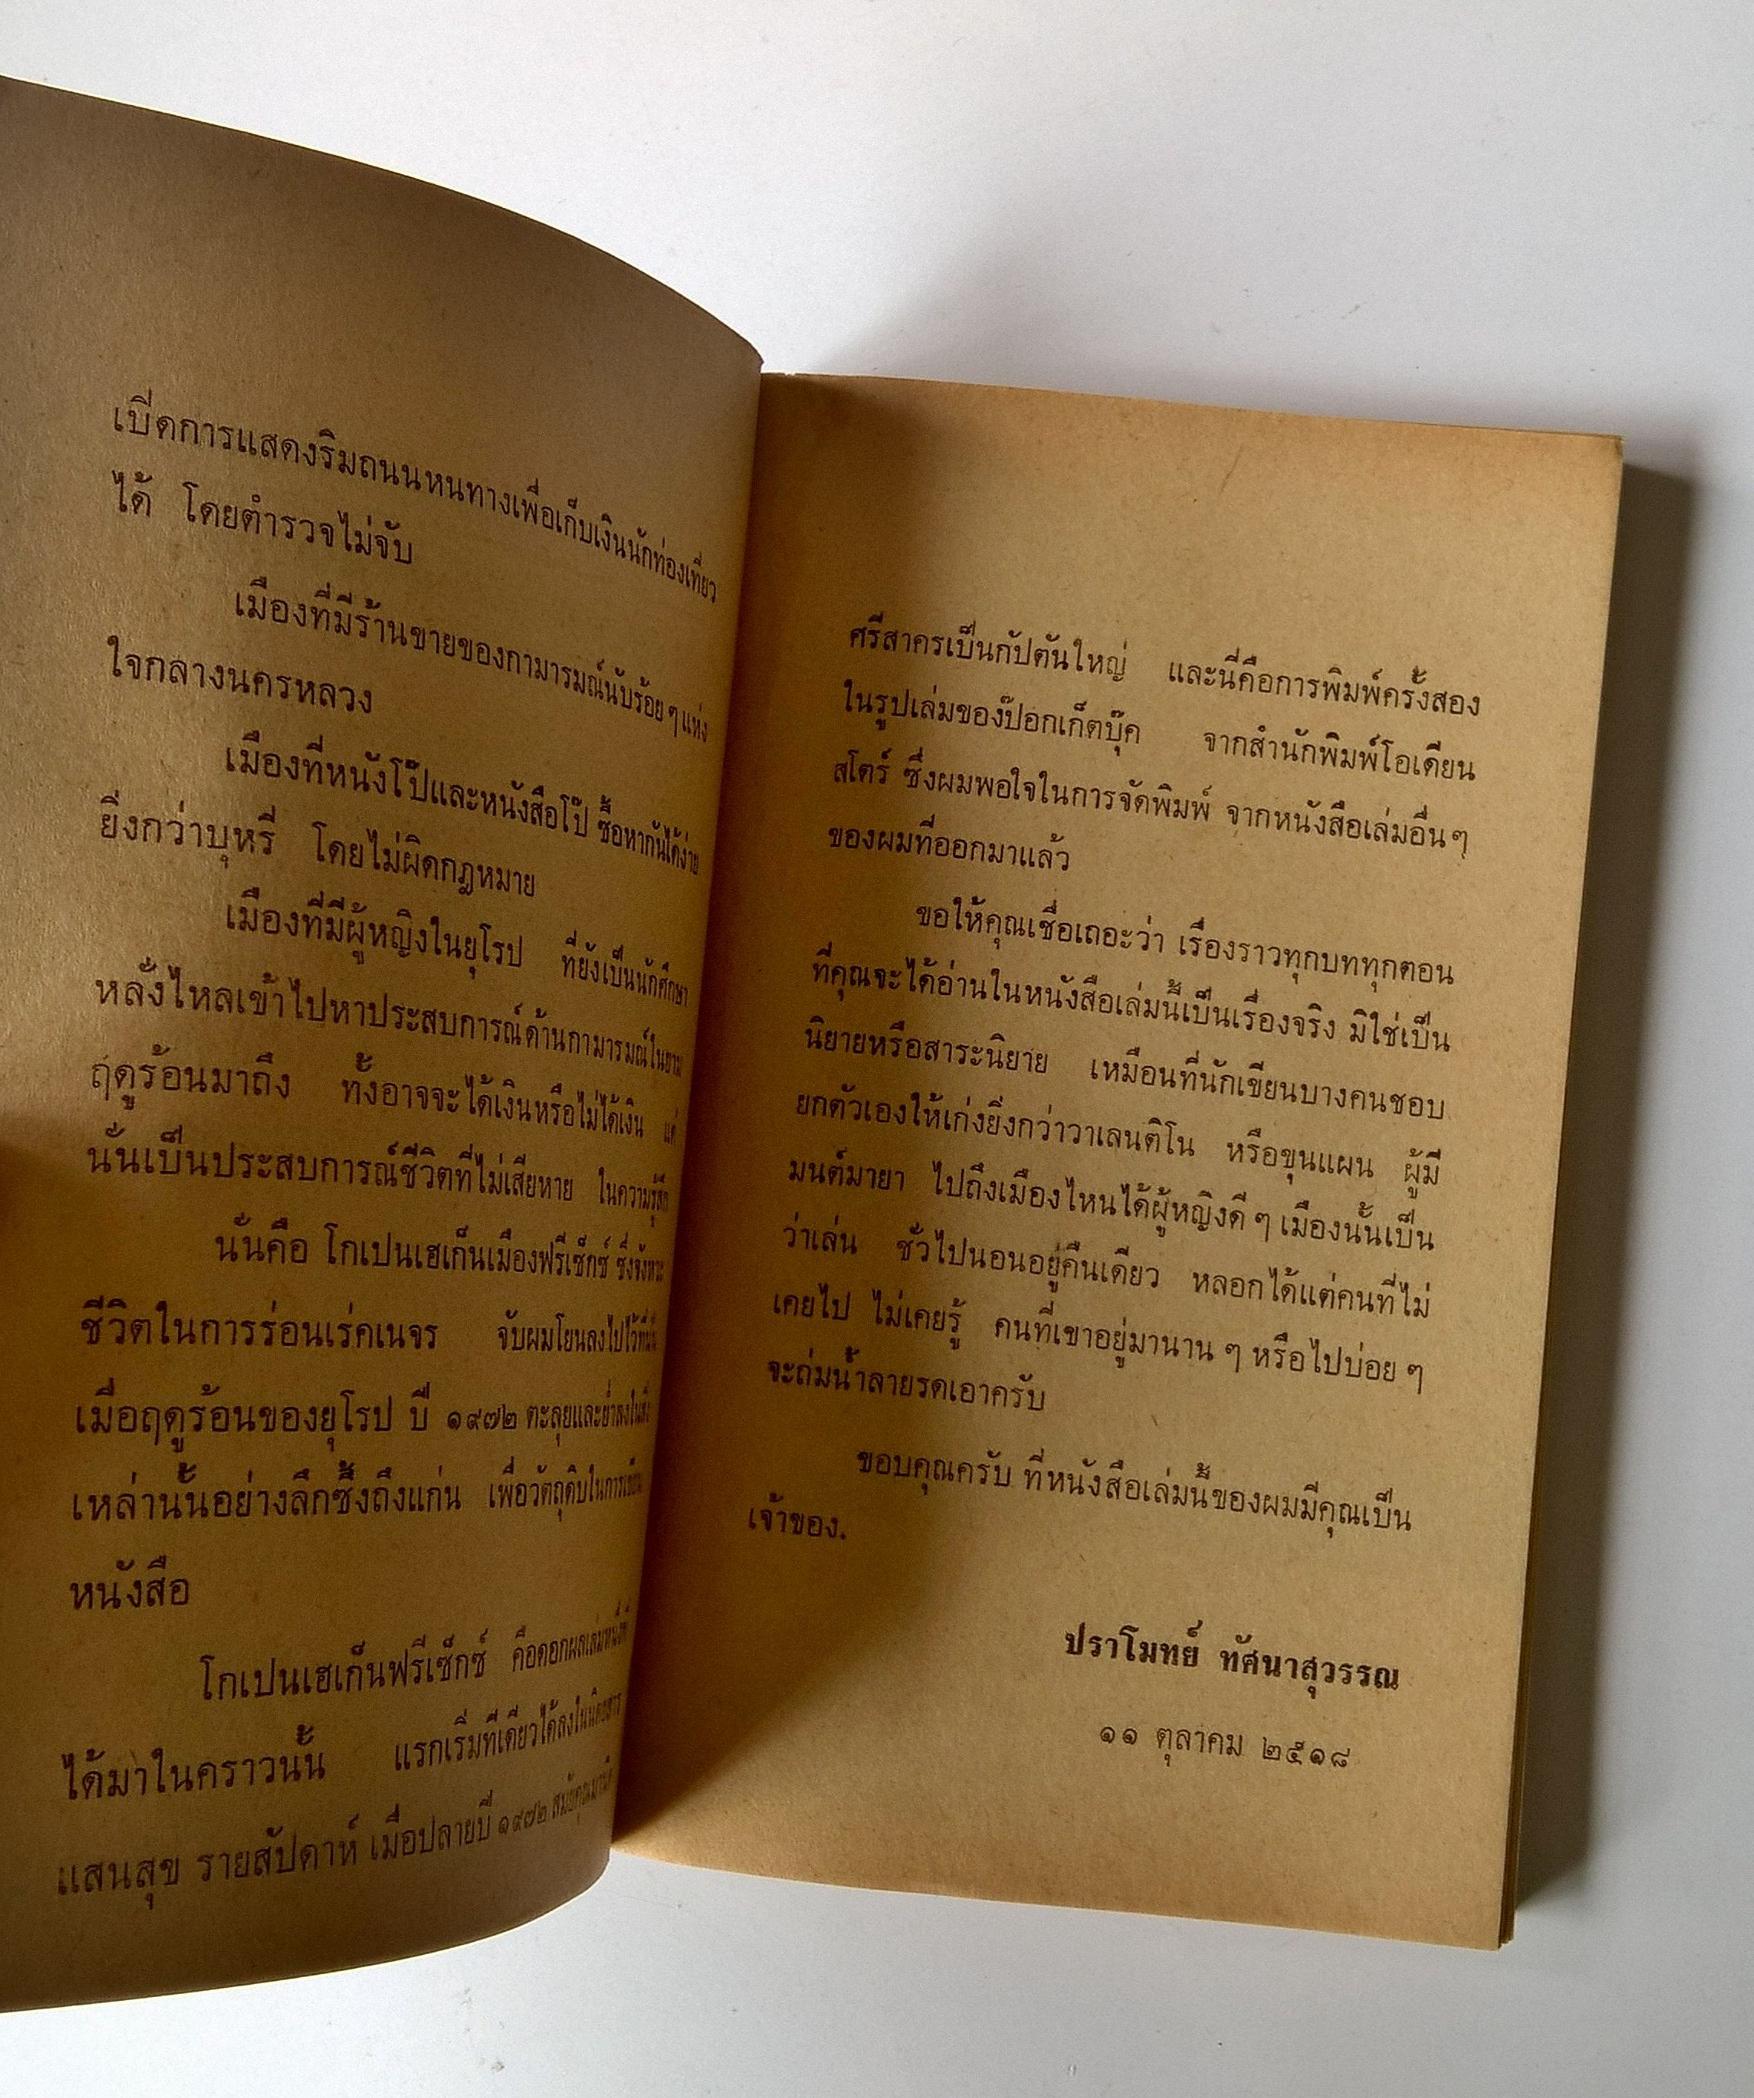 เปิดการแสดงริมถนนหนทางเพื่อเก็บเงินนักท่องเที่ยว
ได้ โดยตำรวจไม่จับ
เมืองที่มีร้านขายของกามารมณ์นับร้อย ๆ แห่ง
ใจกลางนครหลวง
เมืองที่หนังโป๊และหนังสือโป๊ ซื้อหากันได้ง่าย
ยิ่งกว่าบุหรี่ โดยไม่ผิดกฎหมาย
เมืองที่มีผู้หญิงในยุโรป ที่ยังเป็นนักศึกษา
หลั่งไหลเข้าไปหาประสบการณ์ด้านกามารมณ์ในยาม
ฤดูร้อนมาถึง ทั้งอาจจะได้เงินหรือไม่ได้เงิน แต่
นั่นเป็นประสบการณ์ชีวิตที่ไม่เสียหาย ในความรู้สึก
นั่นคือ โกเปนเฮเก็นเมืองฟรีเซ็กซ์ ซึ่งจังหวะ
ชีวิตในการร่อนเร่คเนจร จับผมโยนลงไปไว้ที่นั่น
เมื่อฤดูร้อนของยุโรป ปี ๑๙๗๒ ตะลุยและย่ำลงในสิ่ง
เหล่านั้นอย่างลึกซึ้งถึงแก่น เพื่อวัตถุดิบในการเขียน
หนังสือ
โกเปนเฮเก็นฟรีเซ็กซ์ คือดอกผลเล่มหนึ่งที่
ได้มาในคราวนั้น แรกเริ่มทีเดียวได้ลงในนิตยสาร
แสนสุข รายสัปดาห์ เมื่อปลายปี ๑๙๗๒ สมัยคุณ
ศรีสาครเป็นกัปตันใหญ่ และนี่คือการพิมพ์ครั้งสอง
ในรูปเล่มของป๊อกเก็ตบุ๊ค จากสำนักพิมพ์โอเดียน
สโตร์ ซึ่งผมพอใจในการจัดพิมพ์ จากหนังสือเล่มอื่น ๆ
ของผมที่ออกมาแล้ว
ขอให้คุณเชื่อเถอะว่า เรื่องราวทุกบททุกตอน
ที่คุณจะได้อ่านในหนังสือเล่มนี้เป็นเรื่องจริง มิใช่เป็น
นิยายหรือสาระนิยาย เหมือนที่นักเขียนบางคนชอบ
ยกตัวเองให้เก่งยิ่งกว่าวาเลนติโน หรือขุนแผน ผู้มี
มนต์มายา ไปถึงเมืองไหนได้ผู้หญิงดี ๆ เมืองนั้นเป็น
ว่าเล่น ชั่วไปนอนอยู่คืนเดียว หลอกได้แต่คนที่ไม่
เคยไป ไม่เคยรู้ คนที่เขาอยู่มานาน ๆ หรือไปบ่อย ๆ
จะถ่มน้ำลายรดเอาครับ
ขอบคุณครับ ที่หนังสือเล่มนี้ของผมมีคุณเป็น
เจ้าของ.
ปราโมทย์ ทัศนาสุวรรณ
๑๑ ตุลาคม ๒๕๑๘